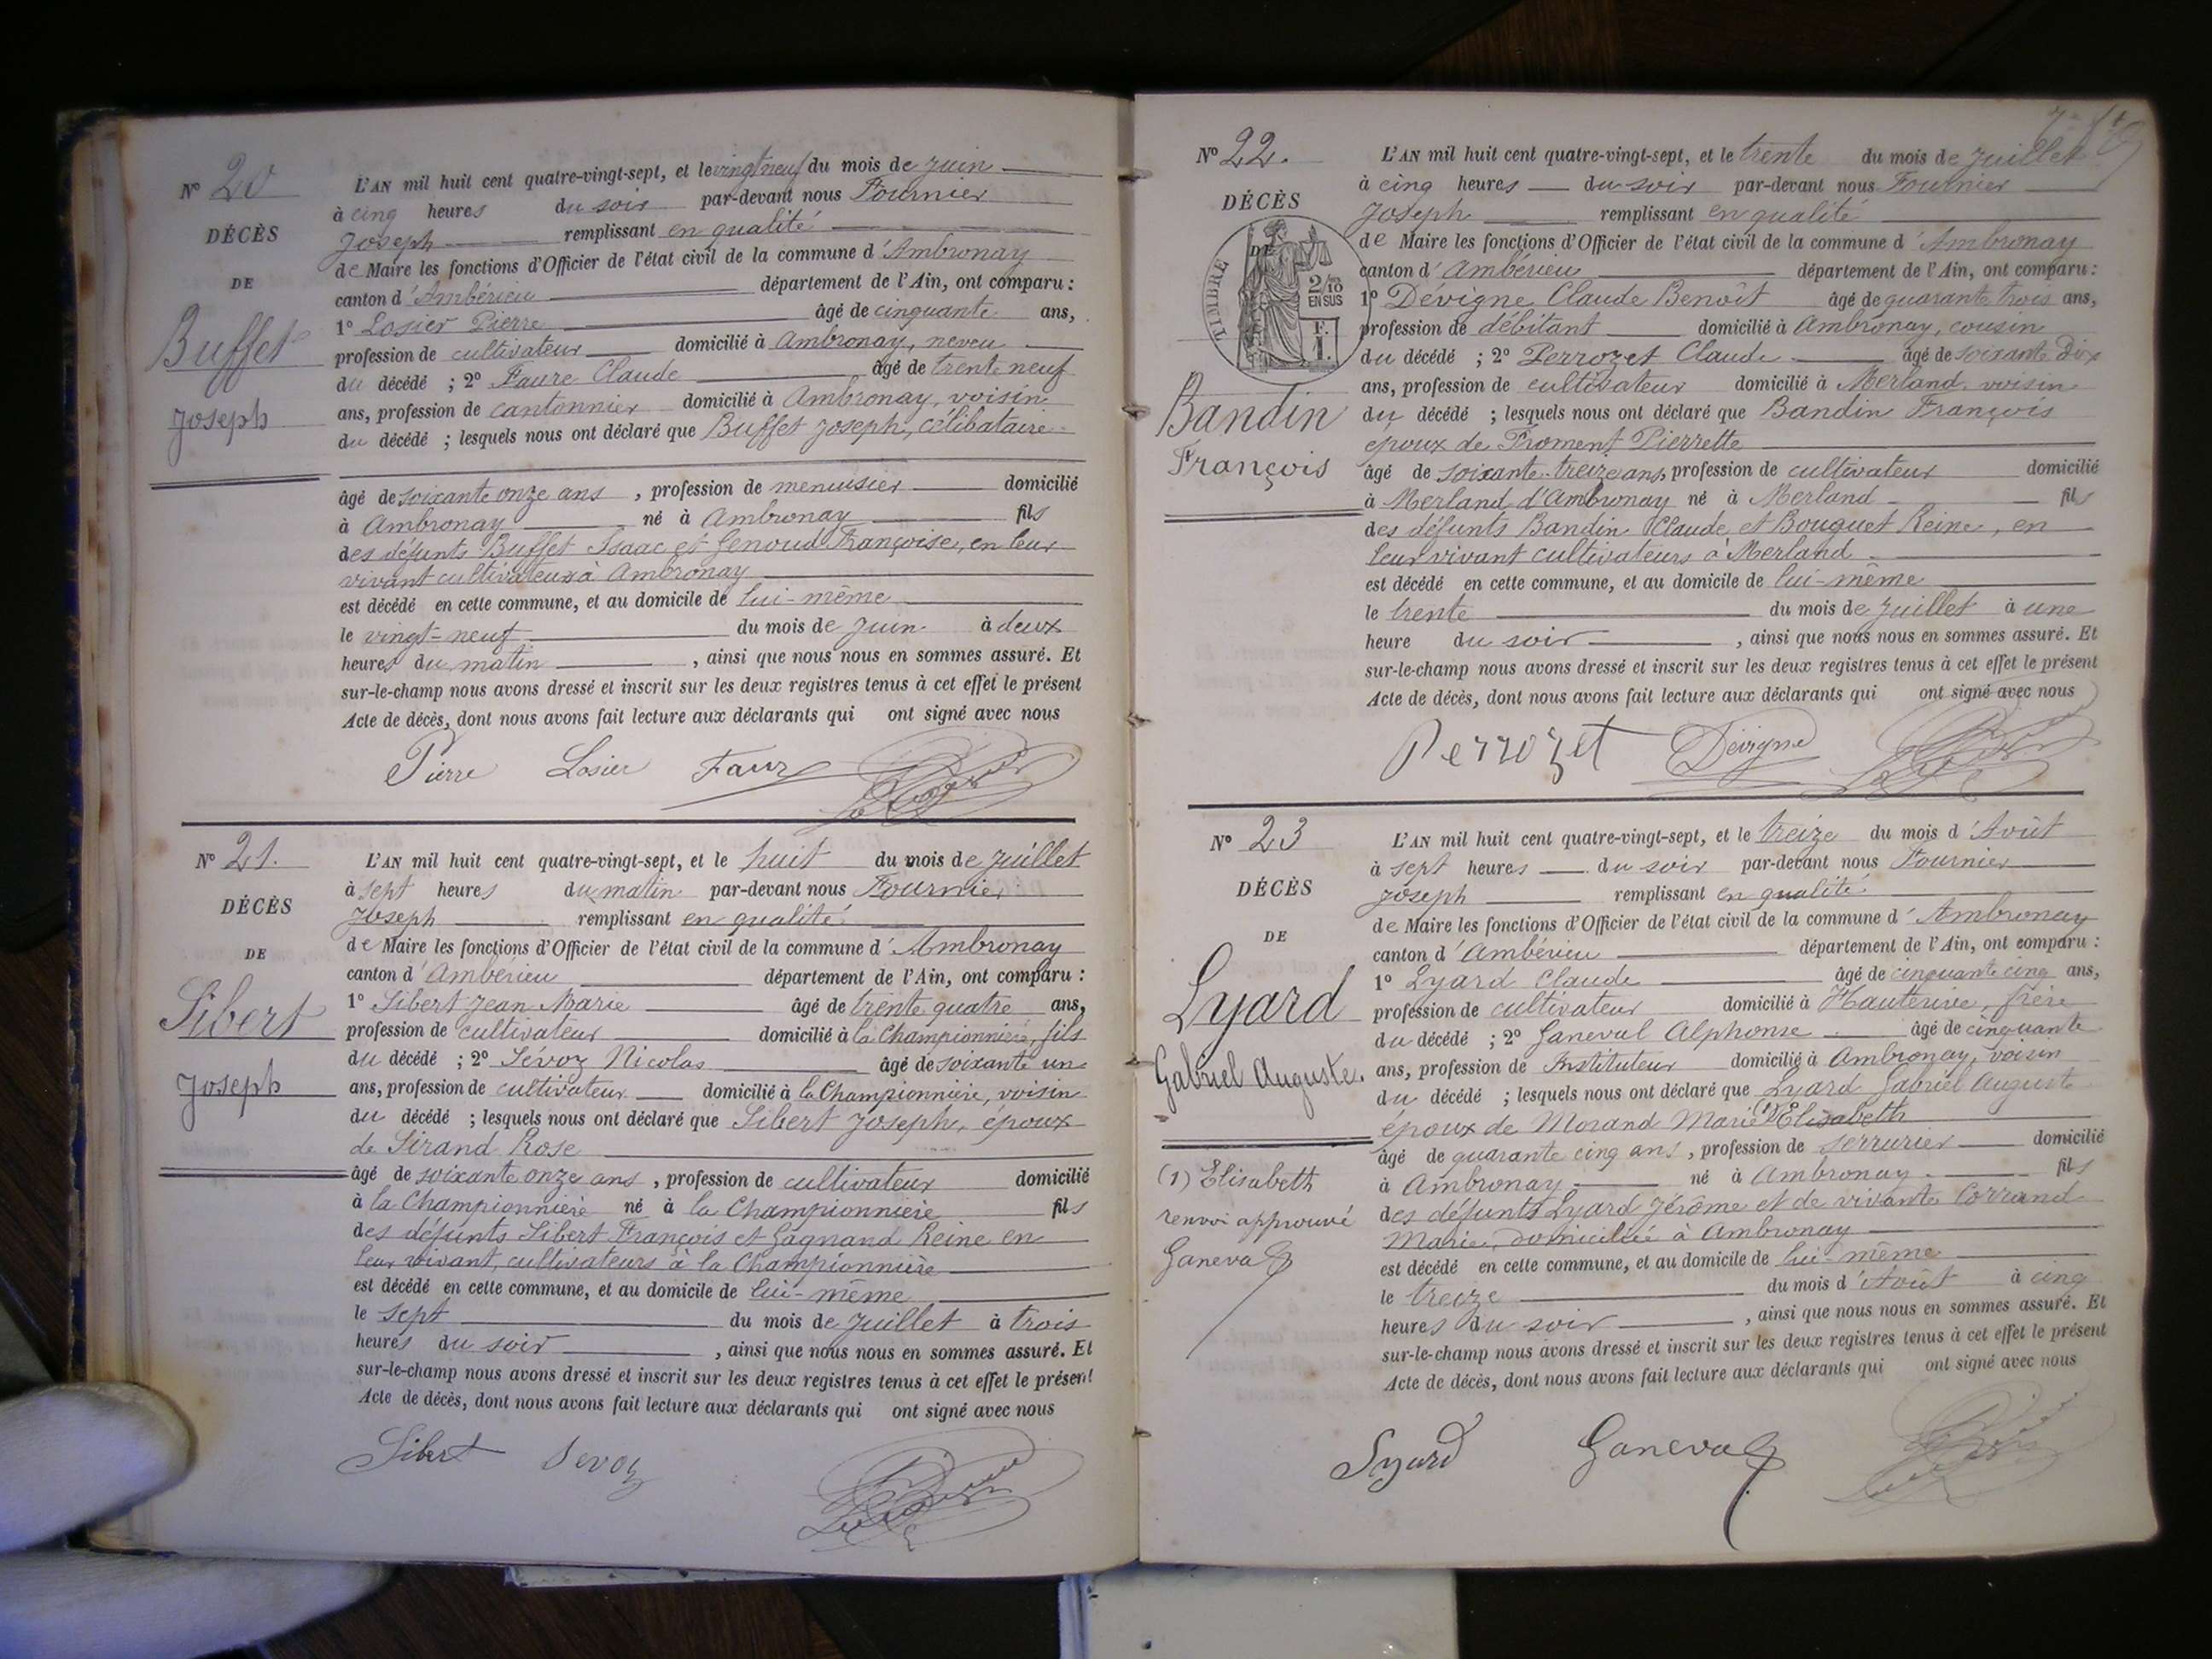 N° 20
DÉCÈS
DE
Buffet
Joseph
L'AN mil huit cent quatre-vingt-sept, et le vingt neuf du mois de juin
à cinq heures du soir par-devant nous Fournier
Joseph remplissant en qualité
de Maire les fonctions d'Officier de l'état civil de la commune d'Ambronay
canton d'Ambérieu département de l'Ain, ont comparu :
1° Losier Pierre âgé de cinquante ans,
profession de cultivateur domicilié à Ambronay, neveu
du décédé ; 2° Faure Claude âgé de trente neuf
ans, profession de cantonnier domicilié à Ambronay, voisin
du décédé ; lesquels nous ont déclaré que Buffet Joseph, célibataire
âgé de soixante onze ans, profession de menuisier domicilié
à Ambronay né à Ambronay fils
des défunts Buffet Isaac et Genoud Françoise, en leur
vivant cultivateurs à Ambronay
est décédé en cette commune, et au domicile de lui-même
le vingt-neuf du mois de juin à deux
heures du matin, ainsi que nous nous en sommes assuré. Et
sur-le-champ nous avons dressé et inscrit sur les deux registres tenus à cet effet le présent
Acte de décès, dont nous avons fait lecture aux déclarants qui ont signé avec nous
Pierre Losier Faure
N° 21.
DÉCÈS
DE
Sibert
Joseph
L'AN mil huit cent quatre-vingt-sept, et le huit du mois de juillet
à sept heures du matin par-devant nous Fournier
Joseph remplissant en qualité
de Maire les fonctions d'Officier de l'état civil de la commune d'Ambronay
canton d'Ambérieu département de l'Ain, ont comparu :
1° Sibert Jean Marie âgé de trente quatre ans,
profession de cultivateur domicilié à la Championnière, fils
du décédé ; 2° Sévoz Nicolas âgé de soixante un
ans, profession de cultivateur domicilié à la Championnière, voisin
du décédé ; lesquels nous ont déclaré que Sibert Joseph, époux
de Sirand Rose
âgé de soixante onze ans, profession de cultivateur domicilié
à la Championnière né à la Championnière fils
des défunts Sibert François et Gagnand Reine en
leur vivant, cultivateurs à la Championnière
est décédé en cette commune, et au domicile de lui-même
le sept du mois de juillet à trois
heures du soir, ainsi que nous nous en sommes assuré. Et
sur-le-champ nous avons dressé et inscrit sur les deux registres tenus à cet effet le présent
Acte de décès, dont nous avons fait lecture aux déclarants qui ont signé avec nous
Sibert Sevoz
N° 22.
DÉCÈS
DE
TIMBRE
2/10
EN SUS
F.
1.
Bandin
François
L'AN mil huit cent quatre-vingt-sept, et le trente du mois de juillet
à cinq heures du soir par-devant nous Fournier
Joseph remplissant en qualité
de Maire les fonctions d'Officier de l'état civil de la commune d'Ambronay
canton d'Ambérieu département de l'Ain, ont comparu :
1° Dévigne Claude Benoît âgé de quarante trois ans,
profession de débitant domicilié à Ambronay, cousin
du décédé ; 2° Perrozet Claude âgé de soixante dix
ans, profession de cultivateur domicilié à Merland, voisin
du décédé ; lesquels nous ont déclaré que Bandin François
époux de Froment Pierrette
âgé de soixante-treize ans, profession de cultivateur domicilié
à Merland d'Ambronay né à Merland fils
des défunts Bandin Claude et Bouguet Reine, en
leur vivant cultivateurs à Merland
est décédé en cette commune, et au domicile de lui-même
le trente du mois de juillet à une
heure du soir, ainsi que nous nous en sommes assuré. Et
sur-le-champ nous avons dressé et inscrit sur les deux registres tenus à cet effet le présent
Acte de décès, dont nous avons fait lecture aux déclarants qui ont signé avec nous
Perrozet Dévigne
N° 23
DÉCÈS
DE
Lyard
Gabriel Auguste.
(1) Elisabeth
renvoi approuvé
Ganeval
L'AN mil huit cent quatre-vingt-sept, et le treize du mois d'Août
à sept heures du soir par-devant nous Fournier
Joseph remplissant en qualité
de Maire les fonctions d'Officier de l'état civil de la commune d'Ambronay
canton d'Ambérieu département de l'Ain, ont comparu :
1° Lyard Claude âgé de cinquante cinq ans,
profession de cultivateur domicilié à Hauterive, frère
du décédé ; 2° Ganeval Alphonse âgé de cinquante
ans, profession de Instituteur domicilié à Ambronay, voisin
du décédé ; lesquels nous ont déclaré que Lyard Gabriel Auguste
époux de Morand Marie (1) Elisabeth
âgé de quarante cinq ans, profession de serrurier domicilié
à Ambronay né à Ambronay fils
des défunts Lyard Jérôme et de vivante Corrand
Marie, domiciliée à Ambronay
est décédé en cette commune, et au domicile de lui-même
le treize du mois d'Août à cinq
heures du soir, ainsi que nous nous en sommes assuré. Et
sur-le-champ nous avons dressé et inscrit sur les deux registres tenus à cet effet le présent
Acte de décès, dont nous avons fait lecture aux déclarants qui ont signé avec nous
Lyard Ganeval